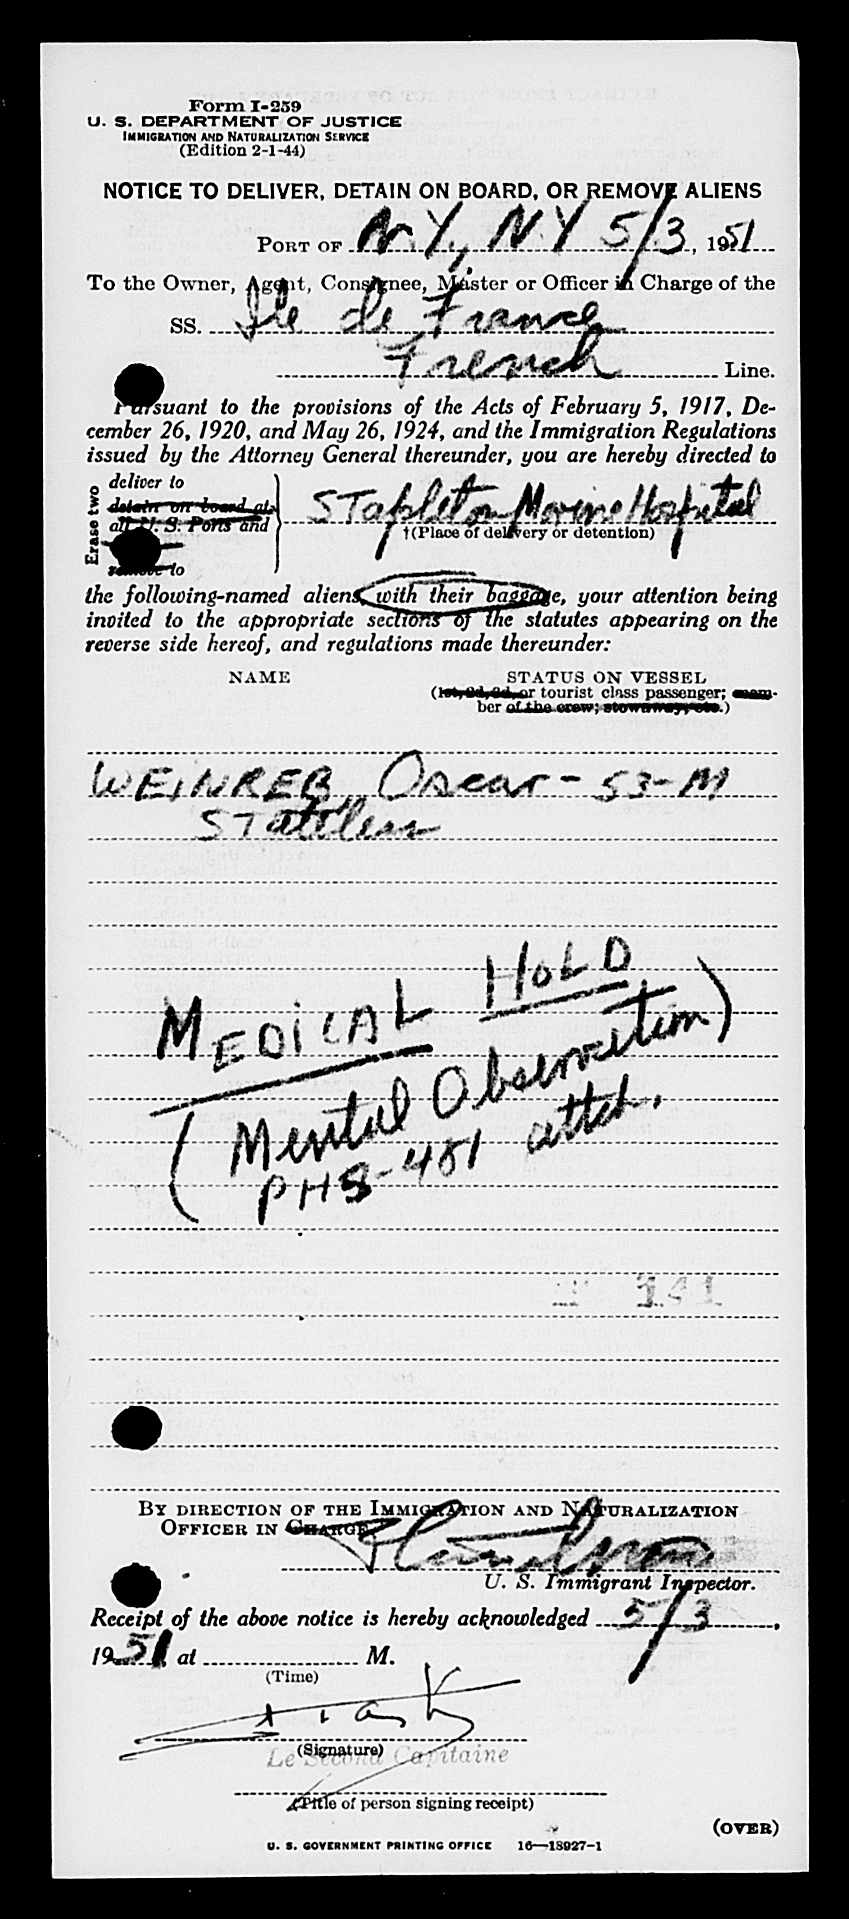 Form I-259
U. S. DEPARTMENT OF JUSTICE
IMMIGRATION AND NATURALIZATION SERVICE
(Edition 2-1-44)
NOTICE TO DELIVER, DETAIN ON BOARD, OR REMOVE ALIENS
PORT OF N.Y., N.Y 5/3, 1951
To the Owner, Agent, Consignee, Master or Officer in Charge of the
SS. Ile de France
French Line.
Pursuant to the provisions of the Acts of February 5, 1917, De-
cember 26, 1920, and May 26, 1924, and the Immigration Regulations
issued by the Attorney General thereunder, you are hereby directed to
Erase two
deliver to
detain on board at
all U. S. Ports and
remove to
Stapleton Marine Hospital
†(Place of delivery or detention)
the following-named aliens, with their baggage, your attention being
invited to the appropriate sections of the statutes appearing on the
reverse side hereof, and regulations made thereunder:
NAME STATUS ON VESSEL
(1st, 2d, 3d, or tourist class passenger; mem-
ber of the crew; stowaway, etc.)
WEINREB, Oscar - 53-M
Stateless
MEDICAL HOLD
(Mental Observation)
PHS-481 attch.
BY DIRECTION OF THE IMMIGRATION AND NATURALIZATION
OFFICER IN CHARGE
U. S. Immigrant Inspector.
Receipt of the above notice is hereby acknowledged 5/3,
1951, at M.
(Time)
(Signature)
Le Second Capitaine
(Title of person signing receipt)
(OVER)
U. S. GOVERNMENT PRINTING OFFICE 16—18927-1